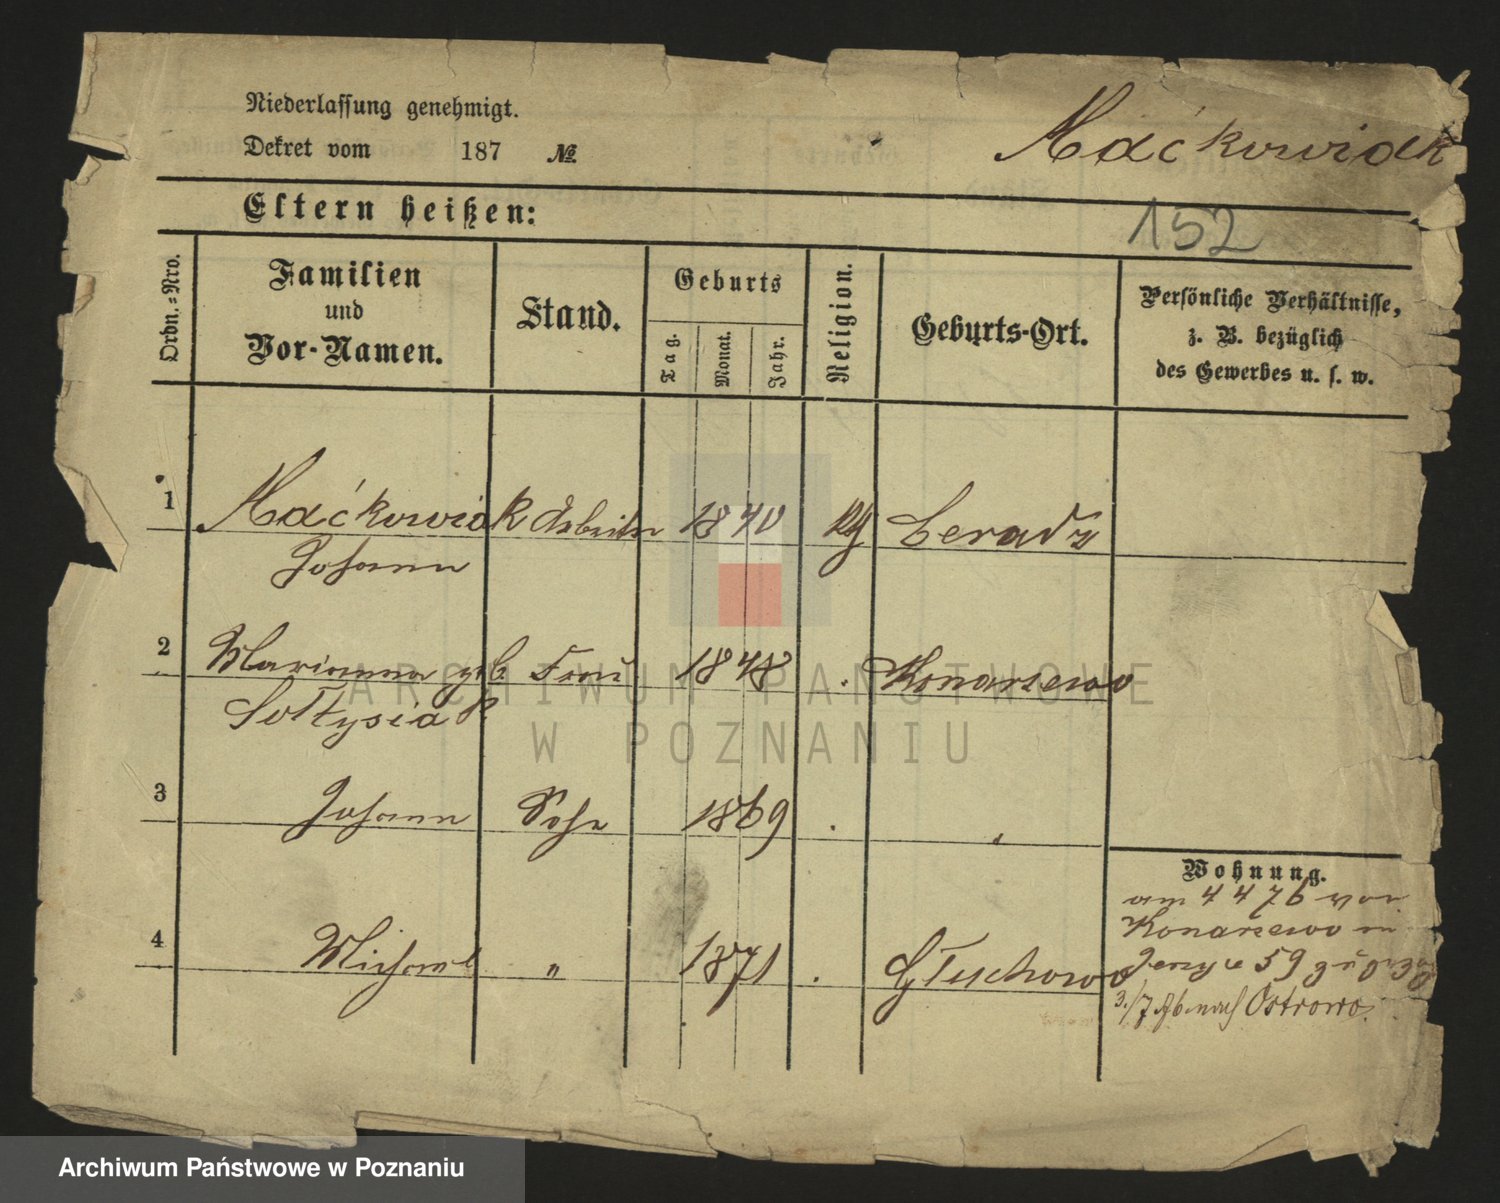 Niederlassung genehmigt.
Dekret vom 187 №
Maćkowiak
Eltern heißen:
152
Ordn.-Nro.
Familien
und
Vor-Namen.
Stand.
Geburts
Tag.
Monat.
Jahr.
Religion.
Geburts-Ort.
Persönliche Verhältnisse,
z. B. bezüglich
des Gewerbes u. s. w.
1 Maćkowiak Arbeiter 1840 Ceradz
Johann
2 Marianna geb. Frau 1848 Konarzewo
Sołtysiak
3 Johann Sohn 1869 "
4 Michael " 1871 Głuchowo
Wohnung.
am 4 4 76 von
Konarzewo in
Jerzyce 59
3./7 Ab nach Ostrowo
ARCHIWUM PAŃSTWOWE
W POZNANIU
Archiwum Państwowe w Poznaniu